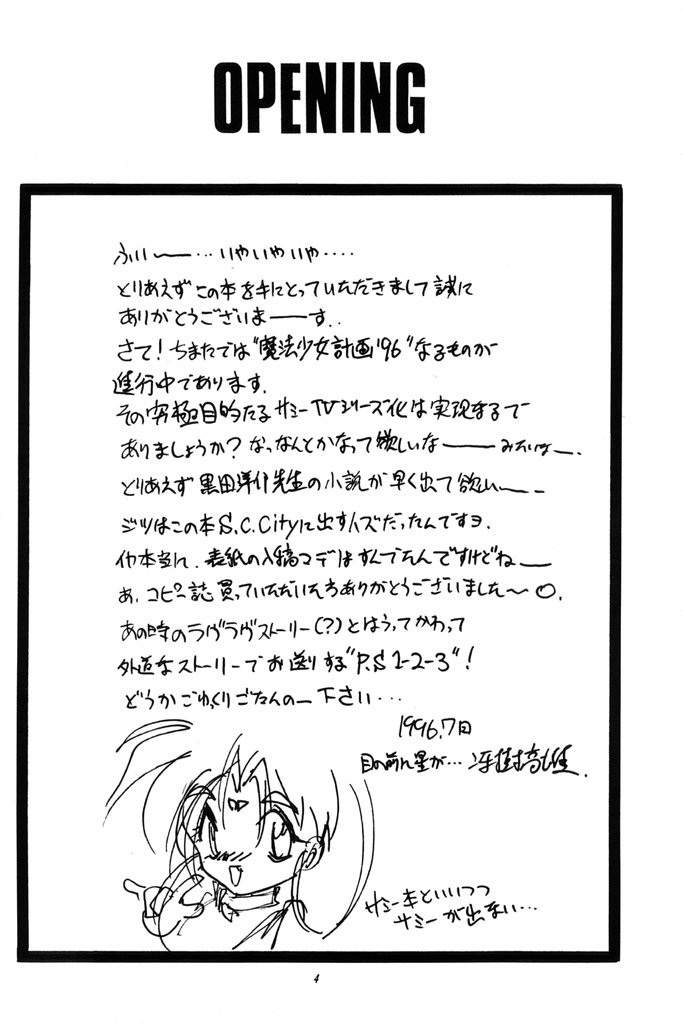 OPENING
ふい〜…いやいやいや‥‥
とりあえずこの本を手にとっていただきまして誠に
ありがとうございまーーす‥
さて！ちまたでは"魔法少女計画'96"なるものが
進行中であります.
その究極目的たるサミーTVシリーズ化は実現するで
ありましょうか？なっなんとかなって欲しいなーーーみたいなー.
とりあえず黒田洋介先生の小説が早く出て欲しい〜ー
ジツはこの本S.C.Cityに出すハズだったんですヨ.
イヤ本当に.表紙の入稿マデはすんでたんですけどねー
あ.コピー誌買っていただいた方ありがとうございました〜○.
あの時のラヴラヴストーリー(?)とはうってかわって
外道なストーリーでお送りする"P.S 1-2-3"！
どうかごゆっくりごたんのー下さい…
1996.7日
目の前に星が…冴樹高雄.
サミー本といいつつ
サミーが出ない…
4